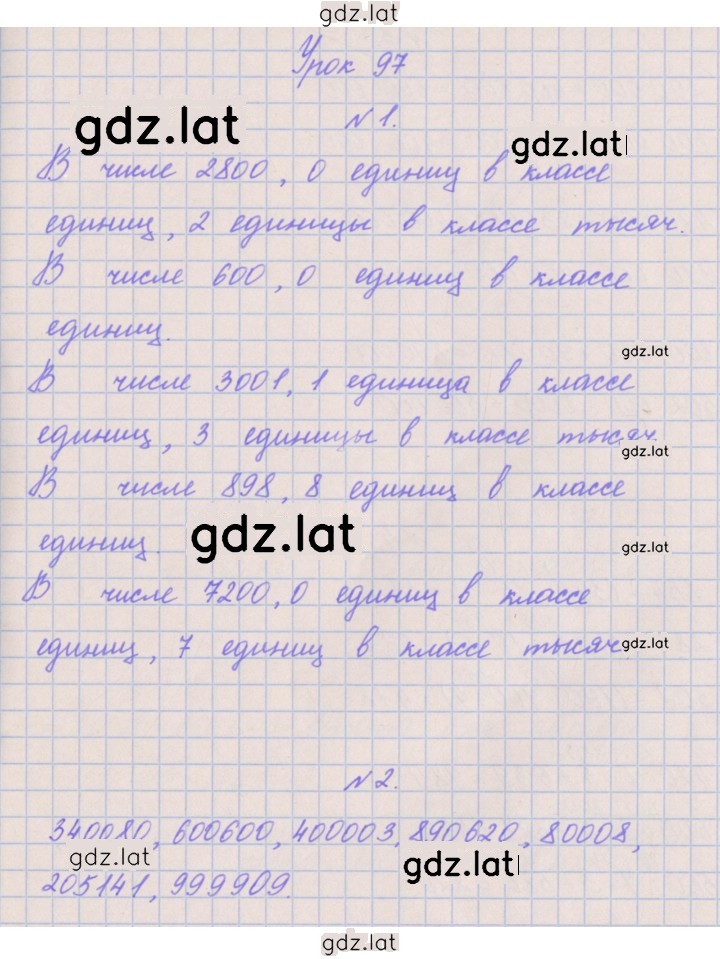 gdz.lat
Урок 97
№1.
gdz.lat
gdz.lat
В числе 2800, 0 единиц в классе
единиц, 2 единицы в классе тысяч.
В числе 600, 0 единиц в классе
единиц.
gdz.lat
В числе 3001, 1 единица в классе
единиц, 3 единицы в классе тысяч.
gdz.lat
В числе 898, 8 единиц в классе
единиц.
gdz.lat
gdz.lat
В числе 7200, 0 единиц в классе
единиц, 7 единиц в классе тысяч
gdz.lat
№2.
340080, 600600, 400003, 890620, 80008,
gdz.lat
gdz.lat
205141, 999909.
gdz.lat